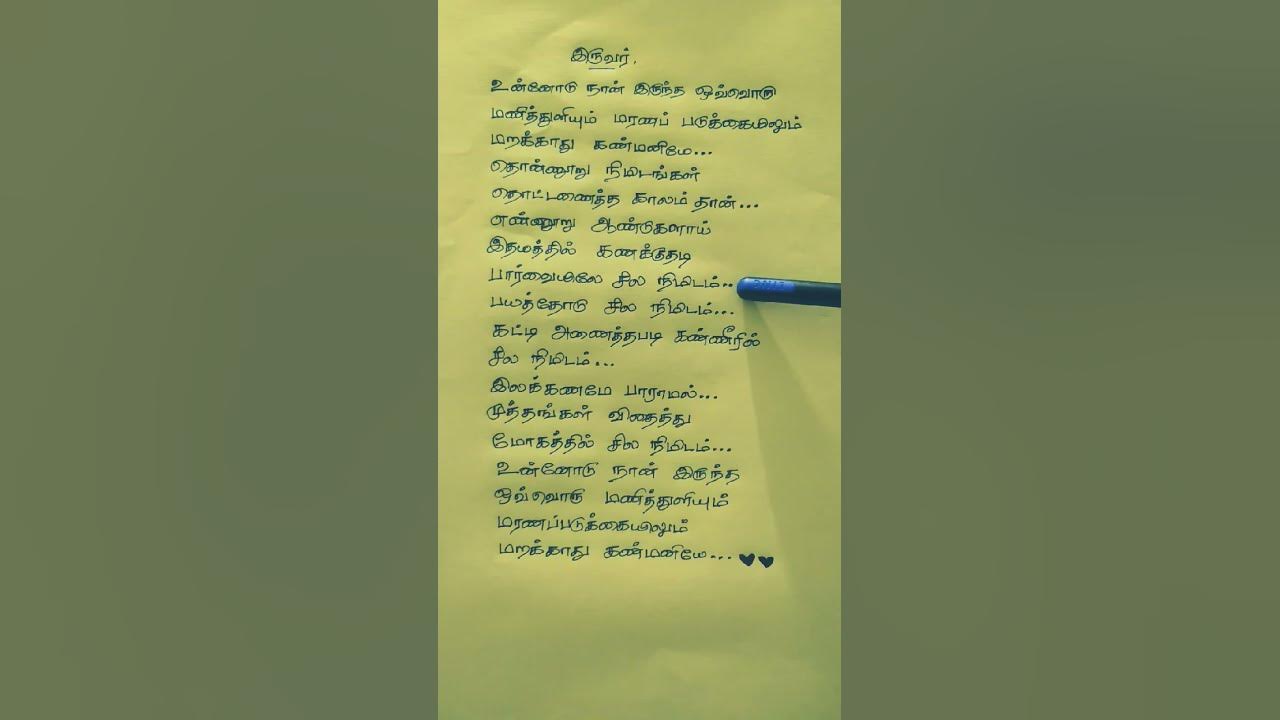 இருவர்.
உன்னோடு நான் இருந்த ஒவ்வொரு
மணித்துளியும் மரணப் படுக்கையிலும்
மறக்காது கண்மணியே...
தொன்னூறு நிமிடங்கள்
தொட்டணைத்த காலம் தான்...
எண்ணூறு ஆண்டுகளாய்
இதயத்தில் கணக்குதடி
பார்வையிலே சில நிமிடம்..
பயத்தோடு சில நிமிடம்...
கட்டி அணைத்தபடி கண்ணீரில்
சில நிமிடம்...
இலக்கணமே பாராமல்...
முத்தங்கள் விதைத்து
மோகத்தில் சில நிமிடம்...
உன்னோடு நான் இருந்த
ஒவ்வொரு மணித்துளியும்
மரணப்படுக்கையிலும்
மறக்காது கண்மணியே...